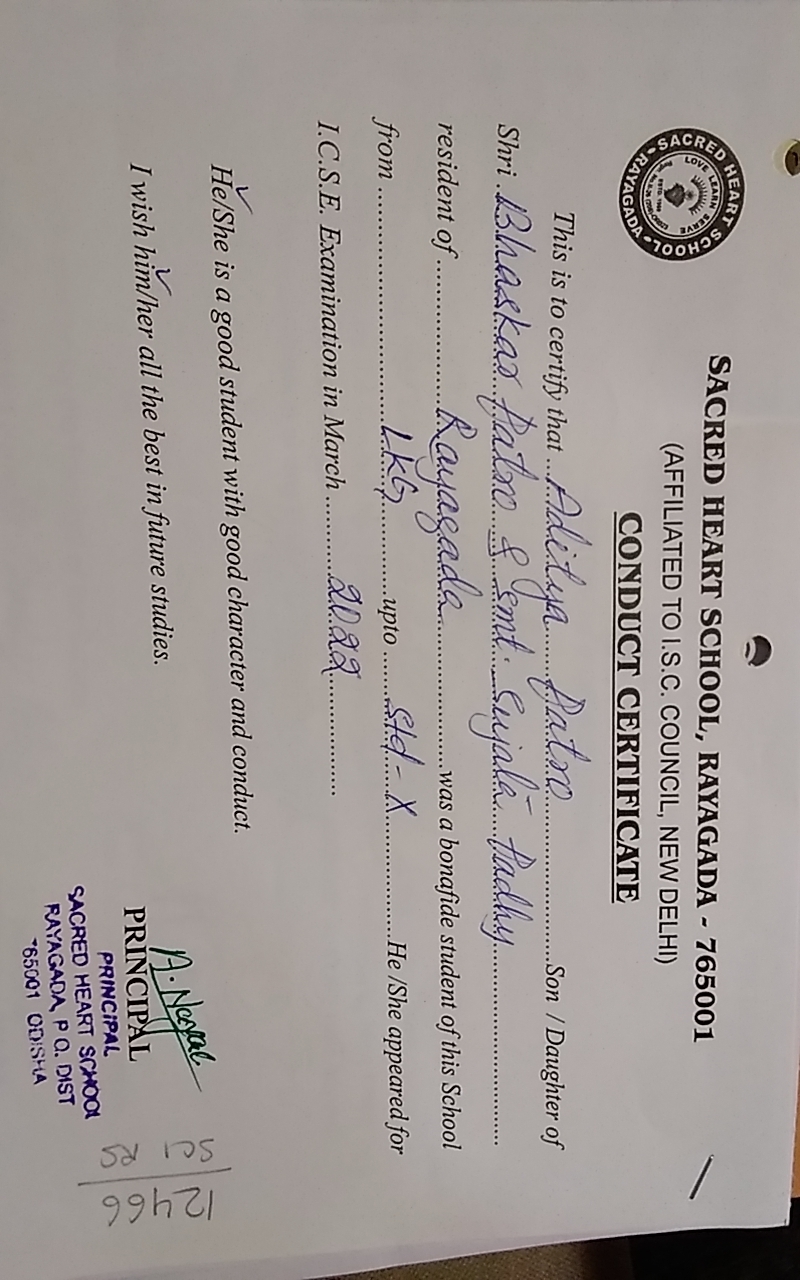 SACRED HEART SCHOOL RAYAGADA
LOVE LEARN SERVE
SACRED HEART SCHOOL, RAYAGADA - 765001
(AFFILIATED TO I.S.C. COUNCIL, NEW DELHI)
CONDUCT CERTIFICATE
This is to certify that ...Aditya Patro...Son / Daughter of
Shri .Bhaskar Patro & Smt. Sujata Padhy...
resident of ...Rayagada...was a bonafide student of this School
from ...LKG...upto ...Std - X...He /She appeared for
I.C.S.E. Examination in March ...2022...
He/She is a good student with good character and conduct.
I wish him/her all the best in future studies.
PRINCIPAL
PRINCIPAL
SACRED HEART SCHOOL
RAYAGADA, P O. DIST
765001 ODISHA
12466